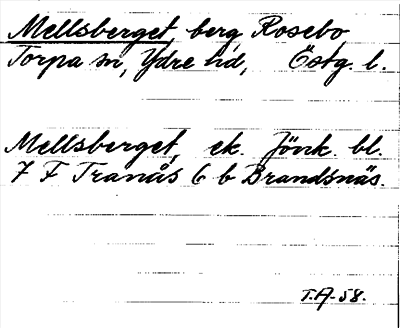 Mellsberget, berg, Rosebo,
Torpa sn, Ydre hd, Östg. l.
Mellsberget, ek. Jönk. bl.
7 F Tranås 6 b Brandsnäs.
T.A-58.